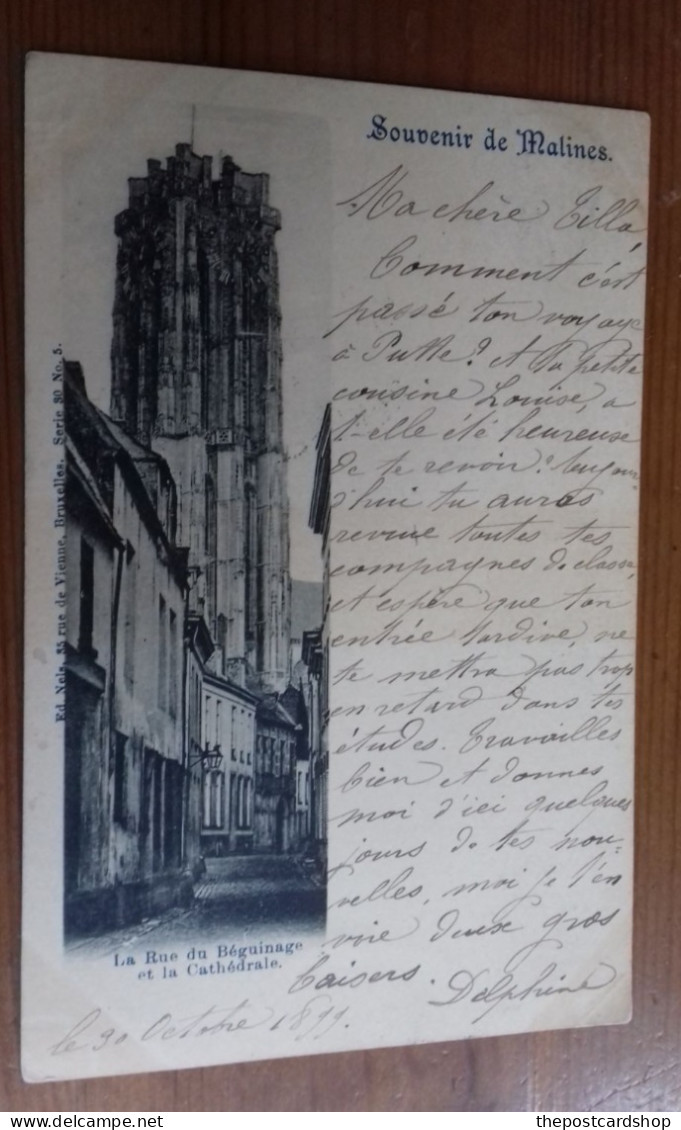 Souvenir de Malines.
Ma chère Tilla,
Comment c'est
passé ton voyage
à Putte? et ta petite
cousine Louise, a
t-elle été heureuse
de te revoir? Aujour-
d'hui tu auras
revue toutes tes
compagnes de classe,
et espère que ton
entrée tardive, ne
te mettra pas trop
en retard dans tes
études. Travailles
bien et donnes
moi d'ici quelques
jours de tes nou-
velles, moi je t'en
voie deux gros
baisers. Delphine
le 30 Octobre 1899.
La Rue du Béguinage
et la Cathédrale.
Ed. Nels, 35 rue de Vienne, Bruxelles. Serie 30 No. 5.
thepostcardshop